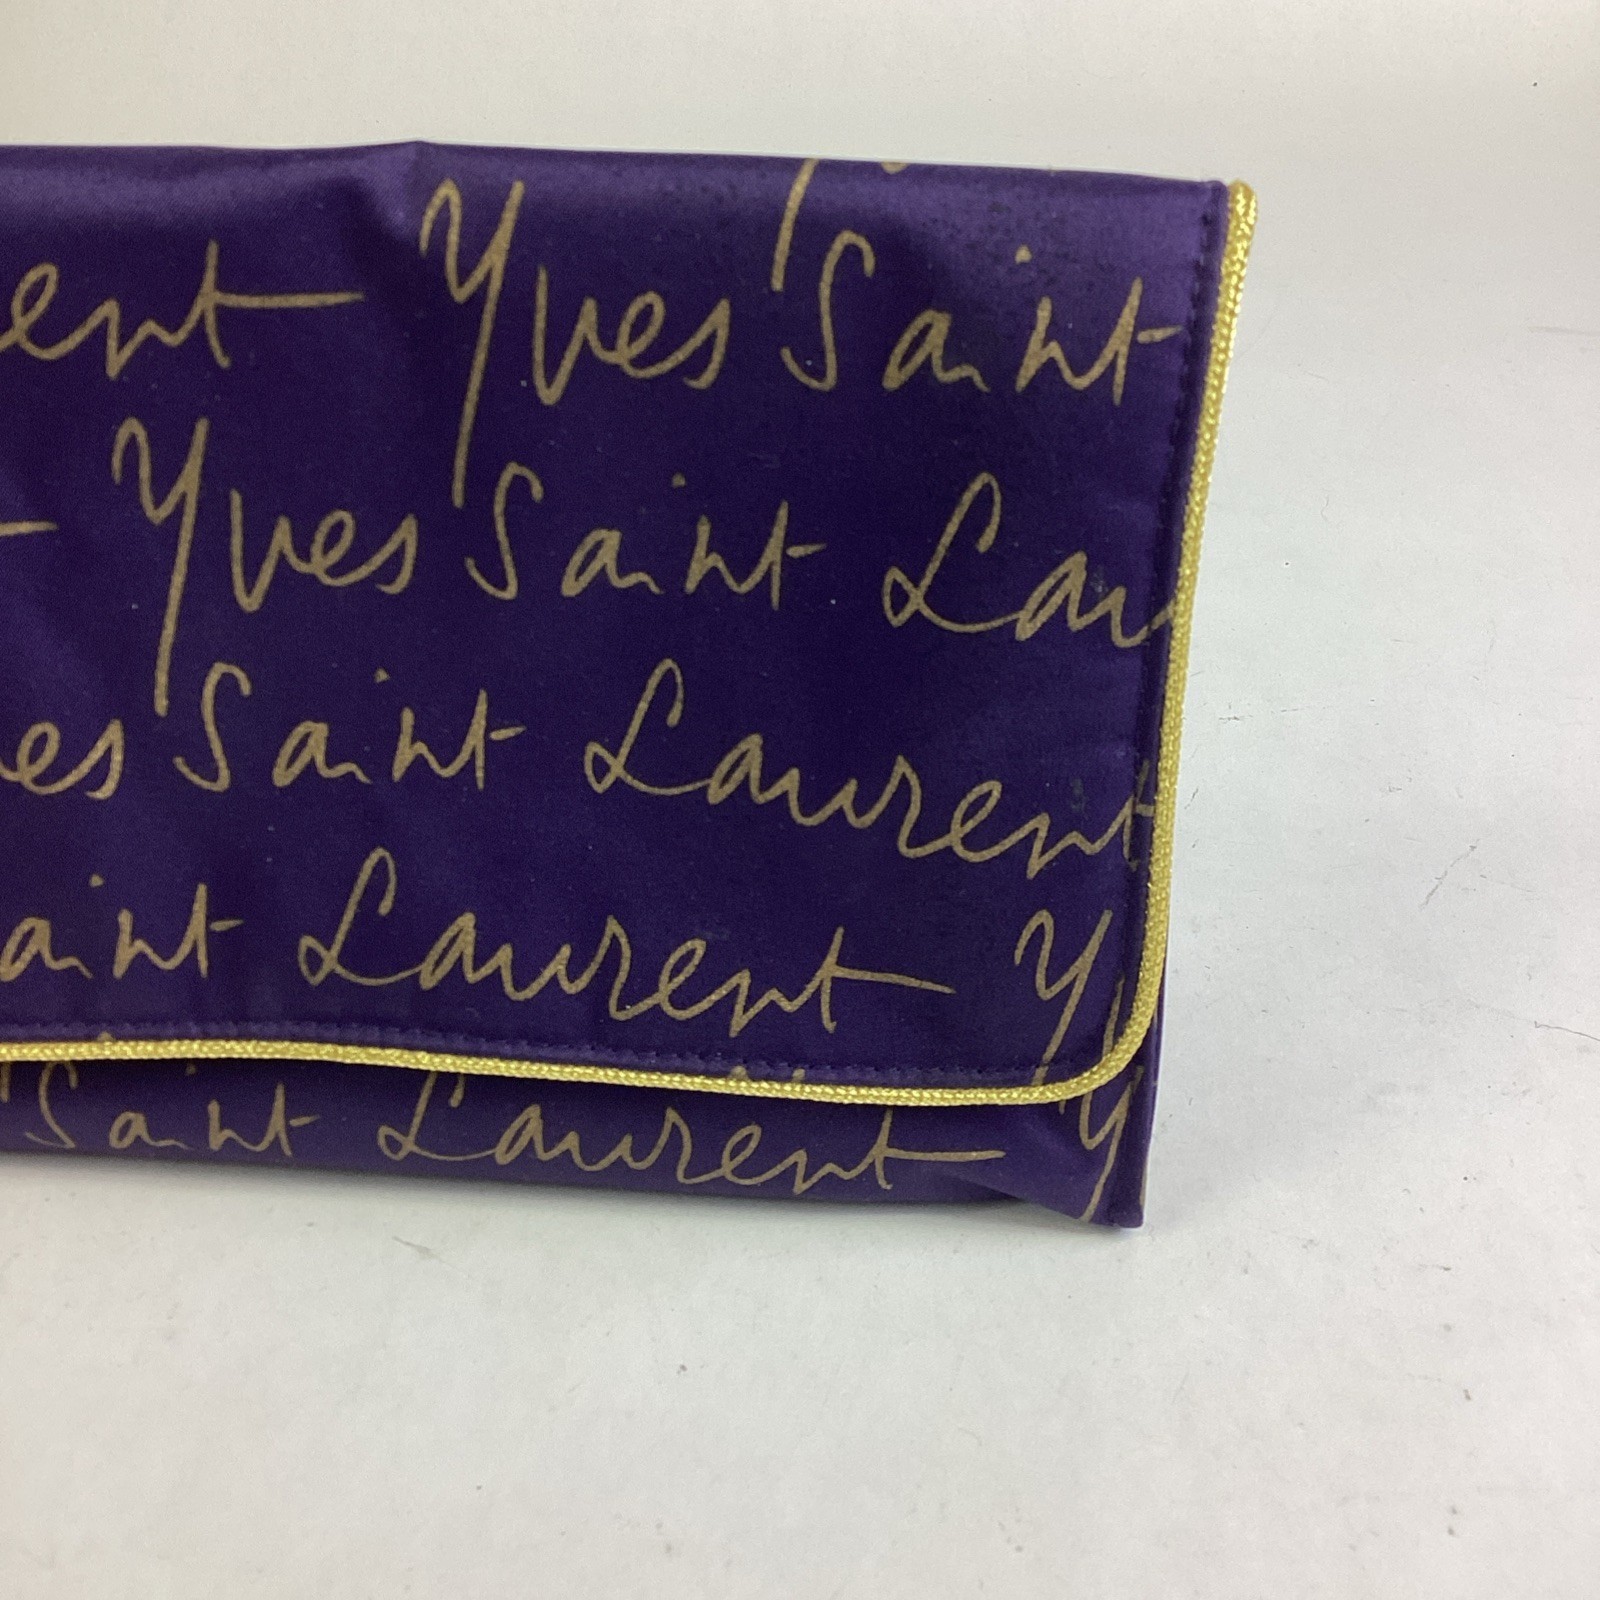 ent Yves Saint
Yves Saint Lau
es Saint Laurent
aint Laurent Y
Saint Laurent Y